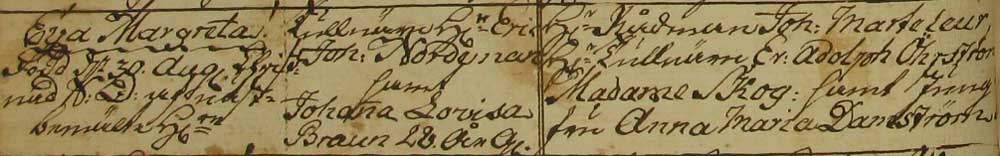 Eva Margreta.
Född d. 30. Aug. Krist-
nad S: D: af nast-
bemälte H:rr
Tullnären H:r Eric
Joh: Nordgman
samt
Johana Lovisa
Braun 28. År G.
H:r Rådman Joh: Marteleur
H:r Tullnären Er: Adolph Ohrström
Madame Skog: samt Jung
fru Anna Maria Damström